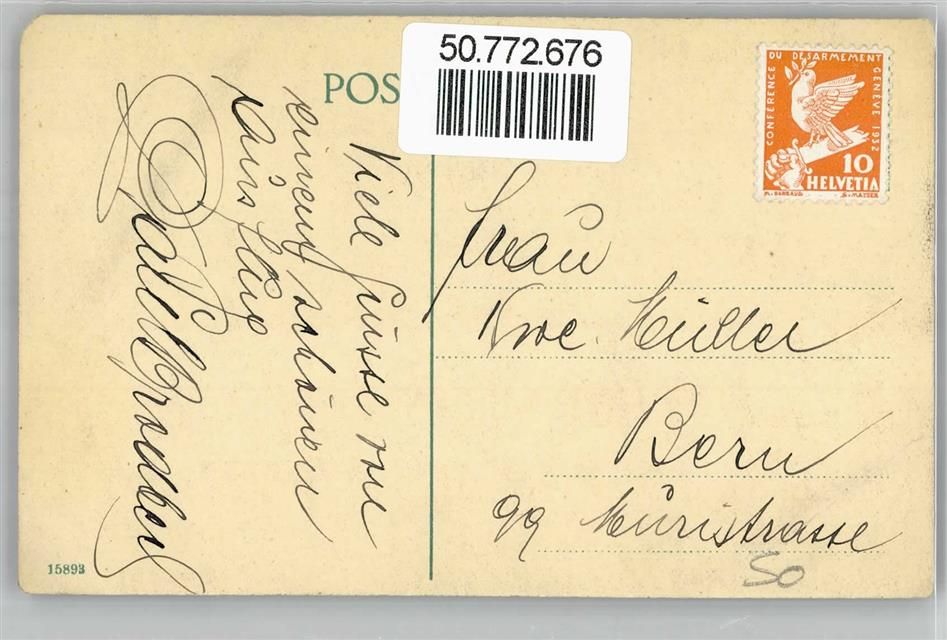 50.772.676
POS
CONFÉRENCE DU DÉSARMEMENT GENÈVE 1932
10
HELVETIA
M. BARRAUD S. MATTER
Viele Grüsse von
einem schönen
Frau
Müller
Bern
99 Müristrasse
50
15893